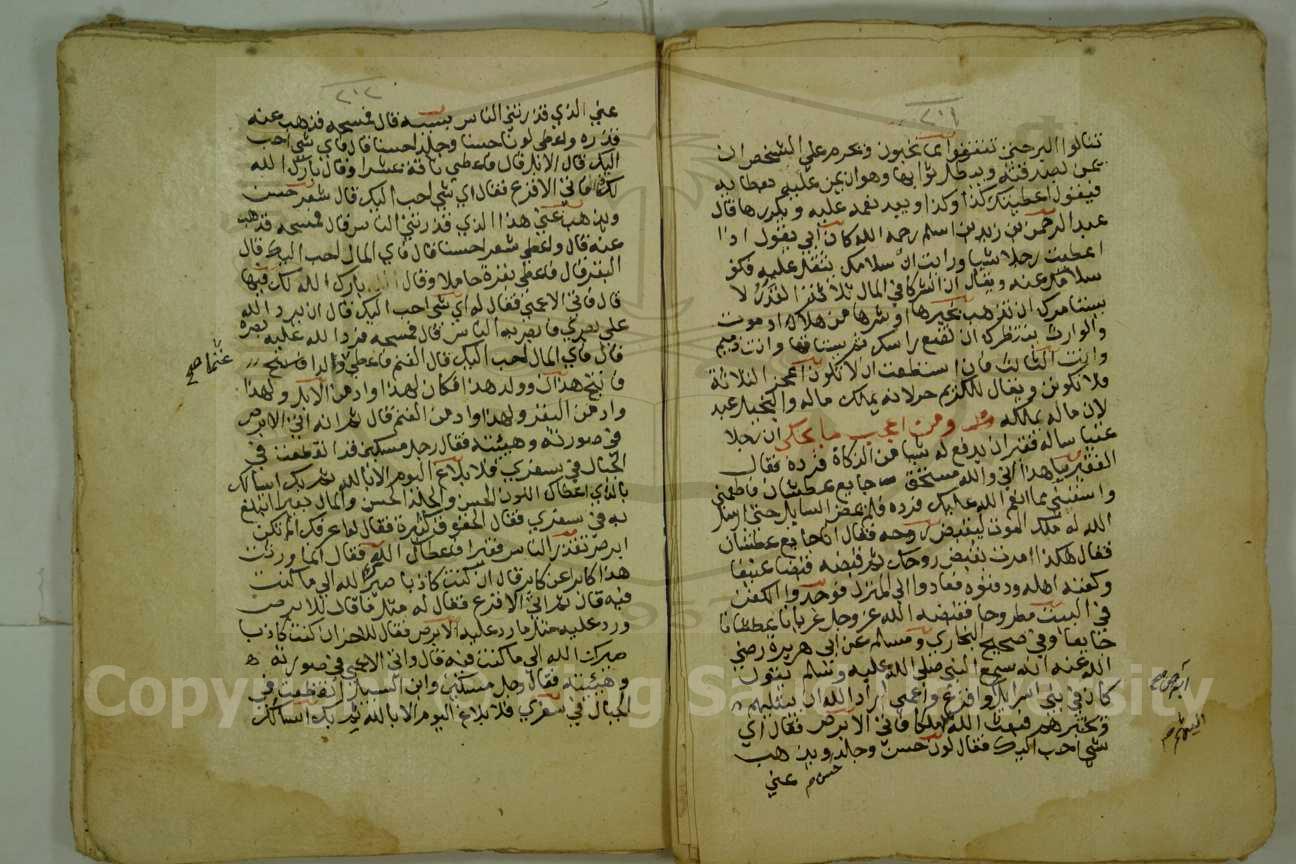 ٢٠١
تنالوا البر حتى تنفقوا مما تحبون ويحرم على الشخص ان
يمن بصدقته ويبطل ثوابها وهو ان يمن عليهم بعطايه
فيقول اعطيتك كذا وكذا ويعد نعمه عليه ويكررها قال
عبد الرحمن بن زيد بن اسلم رحمه الله كان ابي يقول اذا
اعطيت رجلا شيا ورايت ان سلامك يثقل عليه فكف
سلامك عنه ويقال ان الشركا في المال ثلاثة القدر لا
يستامرك ان تذهب بخيرها او شرها من هلاك او موت
والوارث ينتظرك ان تضع راسك ثم يستاقها وانت ذميم
وانت الثالث فان استطعت ان لا تكون اعجز الثلاثة
فلا تكونن ويقال للكريم حر لانه يملك ماله والبخيل عبد
لان ماله يملكه ومن اعجب ما يحكى ان رجلا
غنيا ساله فقير ان يدفع له شيا من الزكاة فرده فقال
الفقير يا هذا اني والله مستحق جايع عطشان فاطعمني
واسقني مما انعم الله عليك فرده فلما عرض السايل حتى ارسل
الله له ملك الموت ليقبض روحه فقال انا جايع عطشان
فقال هكذا امرت بقبض روحك ثم قبضه قبضا عنيفا
وكفنه اهله ودفنوه فعادوا الى المنزل فوجدوا الكفن
في البيت مطروحا فقبضه الله عز وجل عريانا عطشانا
جايعا وفي صحيح البخاري ومسلم عن ابي هريرة رضي
الله عنه انه سمع النبي صلى الله عليه وسلم يقول
كان في بني اسرايل واقرع واعمى اراد الله ان يبتليهم
ويختبرهم فبعث الله ملكا فاتى الابرص فقال اي
شي احب اليك فقال لون حسن وجلد ويذهب
حسن صح عني
ابرص صح
اليهم صح
٢٠٢
عني الذي قذرتني الناس بسببه قال فمسحه فذهب عنه
قذره واعطي لونا حسنا وجلدا حسنا قال فاي شي احب
اليك قال الابل قال فاعطي ناقة عشرا وقال بارك الله
لك فاتى الاقرع فقال اي شي احب اليك قال شعر حسن
ويذهب عني هذا الذي قذرتني الناس قال فمسحه فذهب
عنه قال واعطي شعرا حسنا قال فاي المال احب اليك قال
البقر قال فاعطي بقرة حاملا وقال بارك الله لك فيها
قال فاتى الاعمى فقال له اي شي احب اليك قال ان يرد الله
علي بصري فابصر به الناس قال فمسحه فرد الله عليه بصره
قال فاي المال احب اليك قال الغنم فاعطي والدا فانتج
غنما صح
فانتج هذان وولد هذا فكان لهذا واد من الابل ولهذا
واد من البقر ولهذا واد من الغنم قال ثم انه اتى الابرص
في صورته وهيئته فقال رجل مسكين قد انقطعت في
الحبال في سفري فلا بلاغ اليوم الا بالله ثم بك اسالك
بالذي اعطاك اللون الحسن والجلد الحسن والمال بعيرا اتبلغ
به في سفري فقال الحقوق كثيرة فقال له اعرفك الم تكن
ابرص تقذرك الناس فقيرا فاعطاك الله فقال انما ورثت
هذا كابر عن كابر قال ان كنت كاذبا صيرك الله الى ما كنت
فيه قال ثم اتى الاقرع فقال له مثل ما قال للابرص
ورد عليه مثل ما رد عليه الابرص فقال للاخر ان كنت كاذبا
صيرك الله الى ما كنت فيه قال واتى الاعمى في صورته
وهيئته فقال رجل مسكين وابن السبيل انقطعت في
الحبال في سفري فلا بلاغ اليوم الا بالله ثم بك اسالك